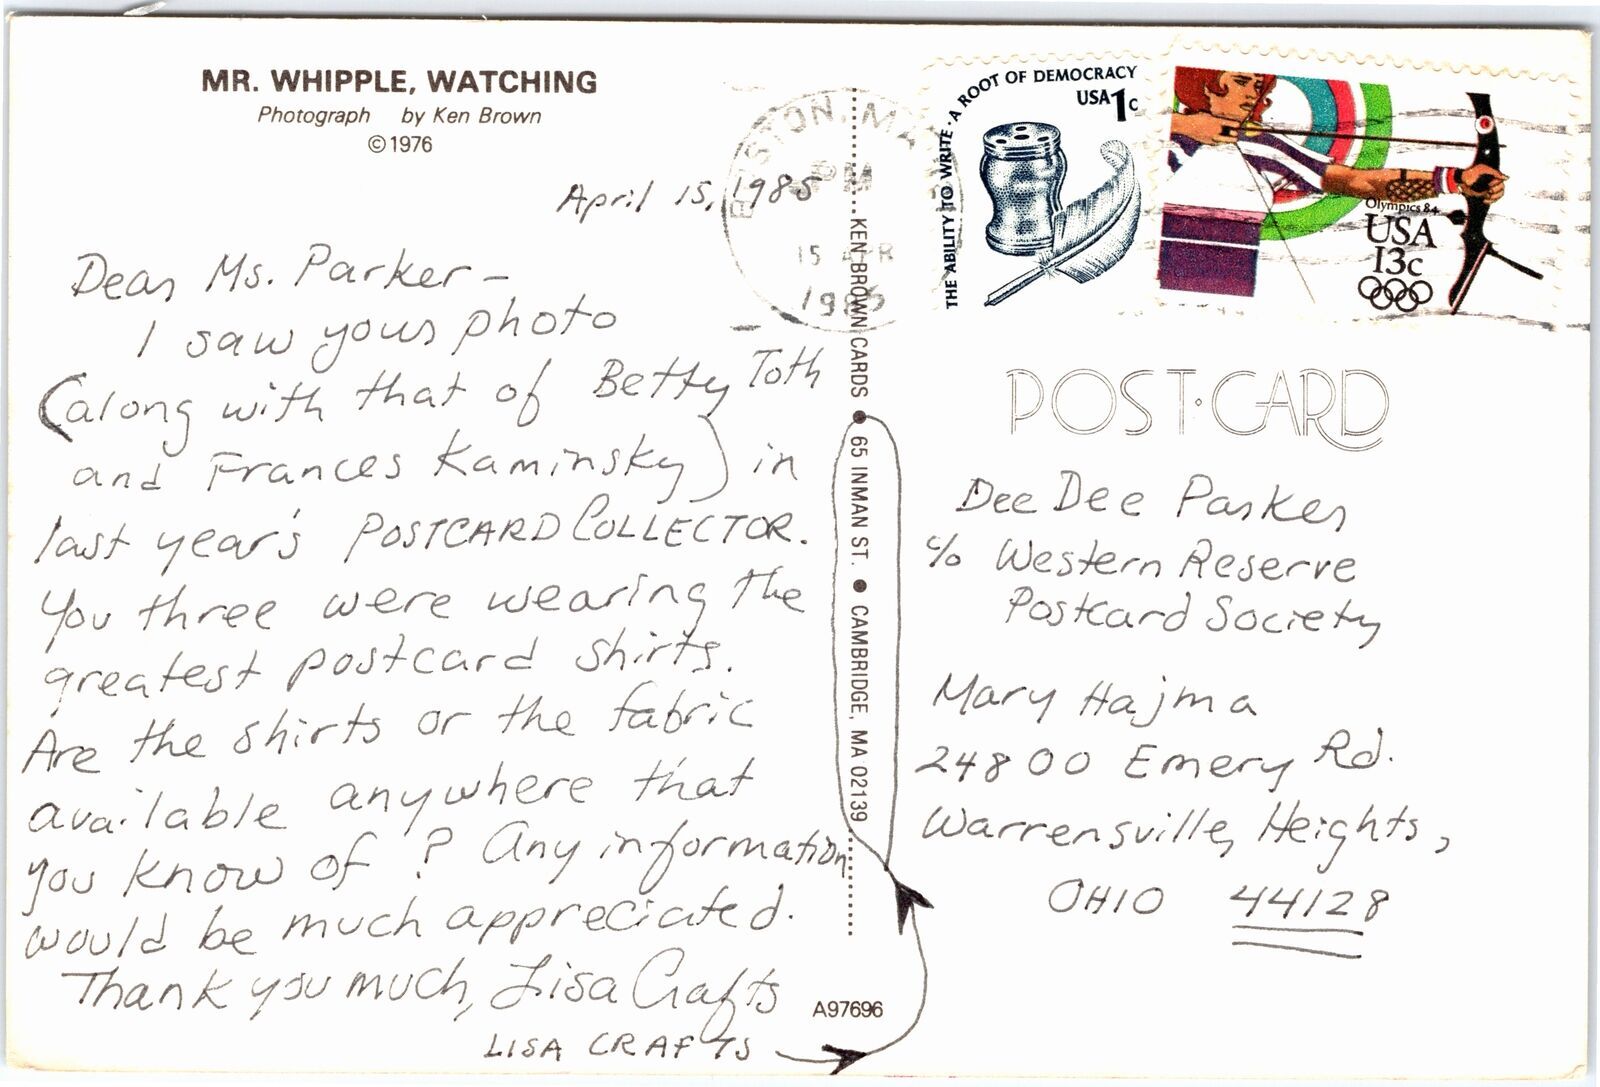 MR. WHIPPLE, WATCHING
Photograph by Ken Brown
© 1976
April 15, 1985
Dear Ms. Parker –
I saw your photo
(along with that of Betty Toth
and Frances Kaminsky) in
last year's POSTCARD COLLECTOR.
You three were wearing the
greatest postcard shirts.
Are the shirts or the fabric
available anywhere that
you know of? Any information
would be much appreciated.
Thank you much, Lisa Crafts
LISA CRAFTS
KEN BROWN CARDS ● 65 INMAN ST. ● CAMBRIDGE, MA 02139
A97696
BOSTON, MA
PM
15 APR
1985
THE ABILITY TO WRITE · A ROOT OF DEMOCRACY
USA 1c
Olympics 84
USA
13c
POST·CARD
Dee Dee Parker
c/o Western Reserve
Postcard Society
Mary Hajma
24800 Emery Rd.
Warrensville, Heights,
OHIO 44128